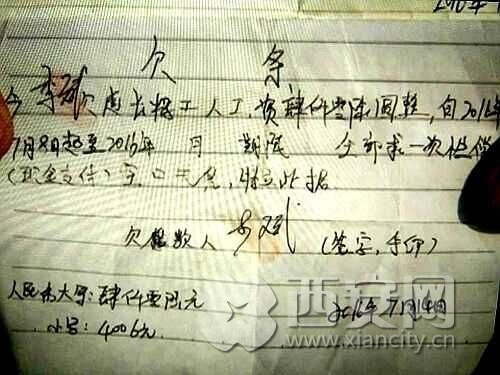 2016年
欠 条
今李斌欠虞长耀工人工资肆仟零陆圆整,自2016年
7月8日起至2016年 月 期限 全部求一次性偿
(现金支付)空口无凭,特立此据
欠款人 李斌 (签字,手印)
人民币大写:肆仟零陆元
2016年7月14日
小写:4006元
西安网
www.xiancity.cn